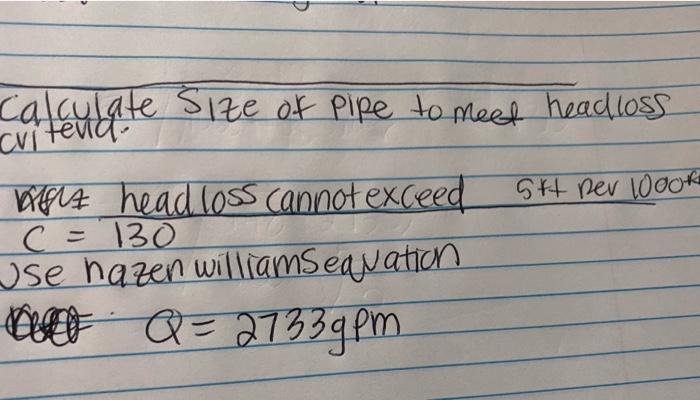 Calculate Size of pipe to meet headloss
criteria.
headloss cannot exceed 5ft per 1000ft
C = 130
Use hazen williams equation
Q = 2733gpm